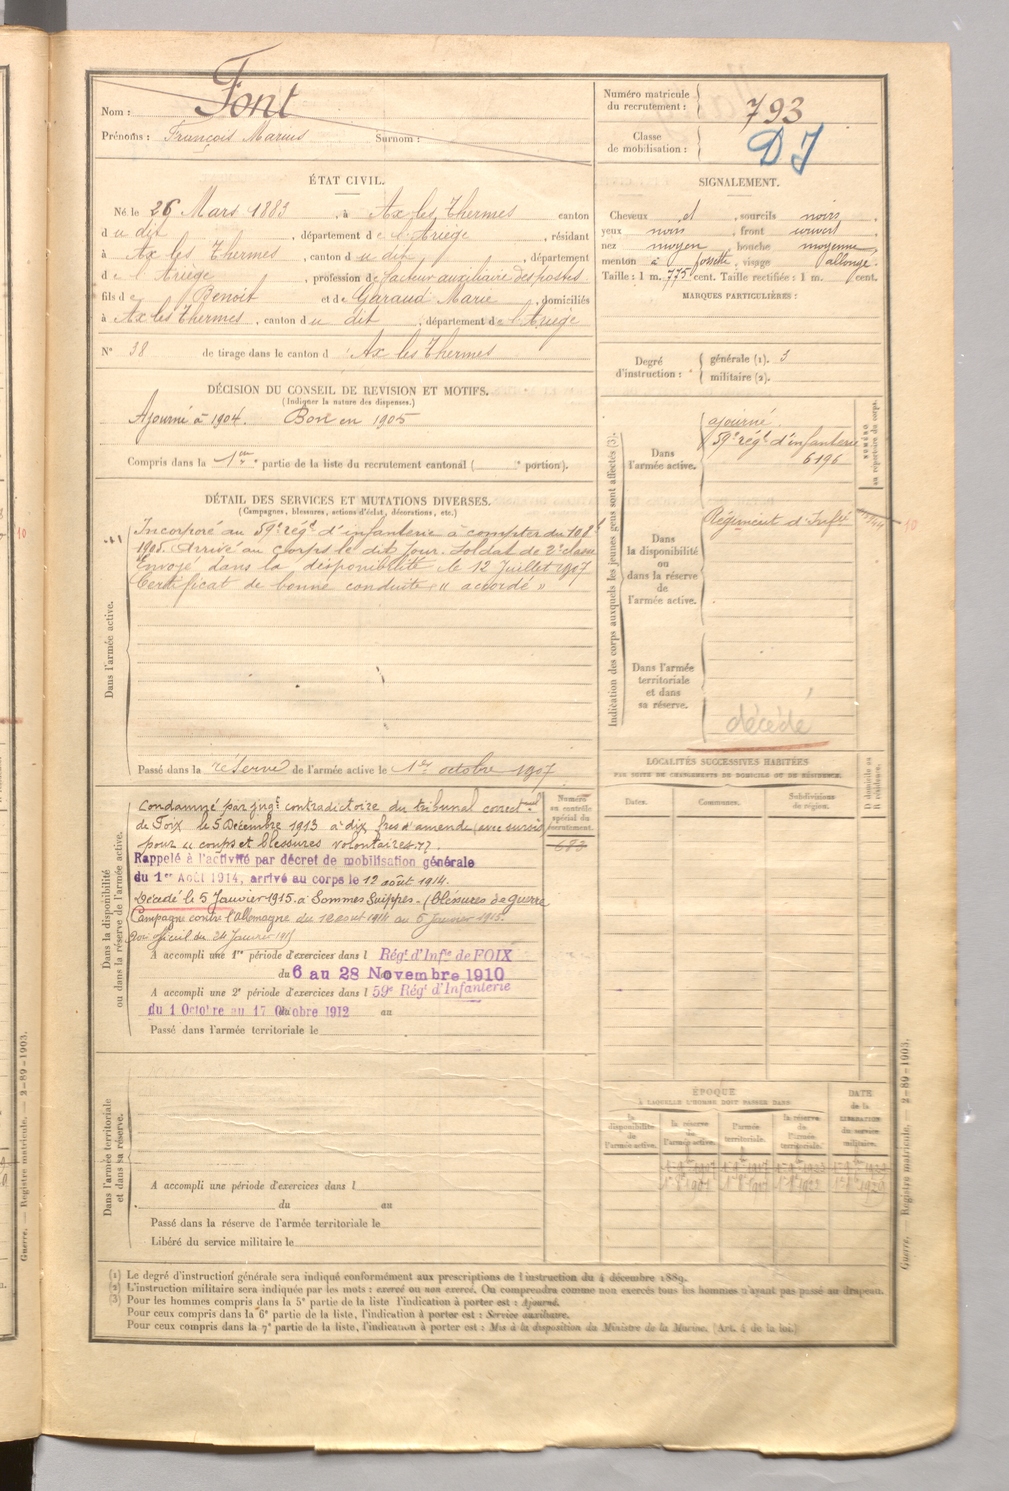 Nom : Font
Prénoms : François Marius Surnom :
Numéro matricule du recrutement : 793
Classe de mobilisation : DJ
ÉTAT CIVIL.
Né le 26 Mars 1883, à Ax les Thermes canton
du dit, département de l'Ariège, résidant
à Ax les Thermes, canton du dit, département
de l'Ariège, profession de facteur auxiliaire des postes
fils de Benoit et de Garaud Marie, domiciliés
à Ax les Thermes, canton du dit, département de l'Ariège
N° 38 de tirage dans le canton d Ax les Thermes
SIGNALEMENT.
Cheveux et, sourcils noirs,
yeux noirs, front ouvert,
nez moyen, bouche moyenne,
menton à fossette, visage allongé.
Taille : 1 m. 775 cent. Taille rectifiée : 1 m. cent.
MARQUES PARTICULIÈRES :
Degré d'instruction :
générale (1). 3
militaire (2).
DÉCISION DU CONSEIL DE REVISION ET MOTIFS.
(Indiquer la nature des dispenses.)
Ajourné à 1904. Bon en 1905
Compris dans la 1ère partie de la liste du recrutement cantonal ( e portion).
DÉTAIL DES SERVICES ET MUTATIONS DIVERSES.
(Campagnes, blessures, actions d'éclat, décorations, etc.)
Dans l'armée active.
Incorporé au 59e régt d'infanterie à compter du 10 8bre
1905. Arrivé au corps le dit jour. Soldat de 2e classe
Envoyé dans la disponibilité le 12 Juillet 1907
Certificat de bonne conduite « accordé »
Passé dans la réserve de l'armée active le 1er octobre 1907
Dans la disponibilité
ou dans la réserve de l'armée active.
Condamné par jugt contradictoire du tribunal correctionnel
de Foix le 5 Décembre 1913 à dix frs d'amende (avec sursis)
pour « coups et blessures volontaires »
Rappelé à l'activité par décret de mobilisation générale
du 1er Août 1914, arrivé au corps le 12 août 1914.
Décédé le 5 Janvier 1915 à Sommes Suippes - (blessures de guerre
Campagne contre l'Allemagne du 12 aout 1914 au 5 Janvier 1915.
Avis officiel du 24 Janvier 1915
A accompli une 1re période d'exercices dans l Régt d'Infie de FOIX
du 6 au 28 Novembre 1910
A accompli une 2e période d'exercices dans l 59e Régt d'Infanterie
du 1 Octobre au 17 Octobre 1912 au
Passé dans l'armée territoriale le
Numéro au contrôle spécial du recrutement.
683
Dans l'armée territoriale
et dans sa réserve.
A accompli une période d'exercices dans l
du au
Passé dans la réserve de l'armée territoriale le
Libéré du service militaire le
Indication des corps auxquels les jeunes gens sont affectés (3).
NUMÉRO au répertoire du corps.
Dans l'armée active.
ajourné.
59e régt d'infanterie
6196
Dans la disponibilité ou dans la réserve de l'armée active.
Régiment d'Inft
10
Dans l'armée territoriale et dans sa réserve.
décédé
LOCALITÉS SUCCESSIVES HABITÉES
PAR SUITE DE CHANGEMENTS DE DOMICILE OU DE RÉSIDENCE.
D domicile ou R résidence.
Dates. Communes. Subdivisions de région.
ÉPOQUE
À LAQUELLE L'HOMME DOIT PASSER DANS
la disponibilité de l'armée active.
la réserve de l'armée active.
l'armée territoriale.
la réserve de l'armée territoriale.
DATE de la LIBÉRATION du service militaire.
(1) Le degré d'instruction générale sera indiqué conformément aux prescriptions de l'instruction du 4 décembre 1889.
(2) L'instruction militaire sera indiquée par les mots : exercé ou non exercé. On comprendra comme non exercés tous les hommes n'ayant pas passé au drapeau.
(3) Pour les hommes compris dans la 5e partie de la liste l'indication à porter est : Ajourné.
Pour ceux compris dans la 6e partie de la liste, l'indication à porter est : Service auxiliaire.
Pour ceux compris dans la 7e partie de la liste, l'indication à porter est : Mis à la disposition du Ministre de la Marine. (Art. 4 de la loi.)
Guerre. — Registre matricule. — 2-89-1903.
Guerre. Registre matricule. — 2-89-1903.
10